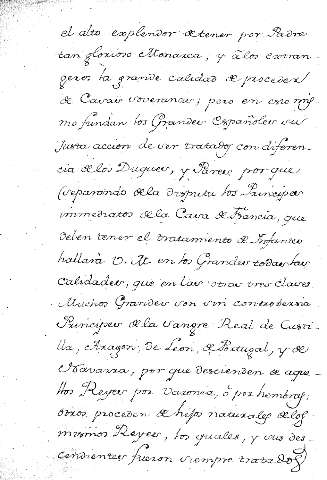 el alto explendor de tener por Padre
tan glorioso Monarca, y á los extran-
geros la grande calidad de proceder
de Casas soveranas; pero en eso mis
mo fundan los Grandes Españoles su
justa accion de ser tratados con diferen-
cia de los Duques, y Pares por que,
(separando de la disputa los Principes
immediatos de la Casa de Francia, que
deben tener el tratamiento de Infantes
hallará V. M. en los Grandes todas las
calidades, que en las otras tres clases.
Muchos Grandes son sin controversia
Principes de la sangre Real de Casti-
lla, Aragon, de Leon, de Portugal, y de
Navarra, por que descienden de aque-
llos Reyes por varones, ó por hembras;
otros proceden de hijos naturales de los
mismos Reyes, los quales, y sus des-
cendientes fueron siempre tratados